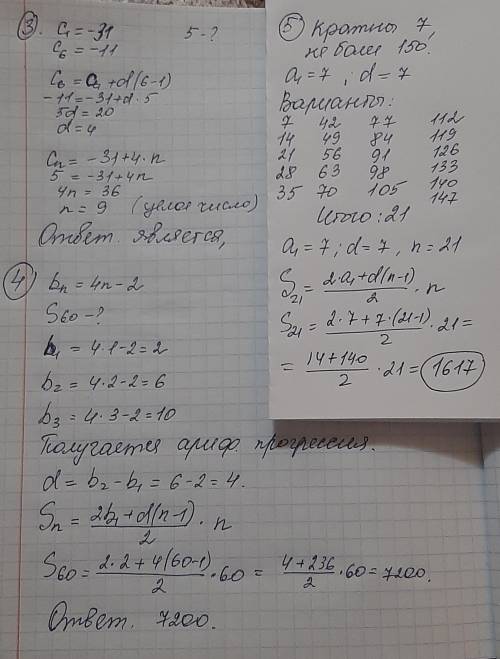 3. c₁ = -31      5 - ?
c₆ = -11
c₆ = a₁ + d(6-1)
-11 = -31 + d · 5
5d = 20
d = 4
cₙ = -31 + 4 · n
5 = -31 + 4n
4n = 36
n = 9 (целое число)
Ответ. является,
4 bₙ = 4n - 2
S₆₀ - ?
b₁ = 4·1-2 = 2
b₂ = 4·2-2 = 6
b₃ = 4·3-2 = 10
Получается ариф. прогрессия.
d = b₂ - b₁ = 6 - 2 = 4.
Sₙ = (2b₁ + d(n-1))/2 · n
S₆₀ = (2·2 + 4(60-1))/2 · 60 = (4+236)/2 · 60 = 7200.
Ответ. 7200.
5 Кратны 7,
не более 150.
a₁ = 7 ; d = 7
Варианты:
7 42 77 112
14 49 84 119
21 56 91 126
28 63 98 133
35 70 105 140
147
Итого: 21
a₁ = 7 ; d = 7 , n = 21
S₂₁ = (2·a₁ + d(n-1))/2 · n
S₂₁ = (2·7 + 7·(21-1))/2 · 21 =
= (14+140)/2 · 21 = 1617